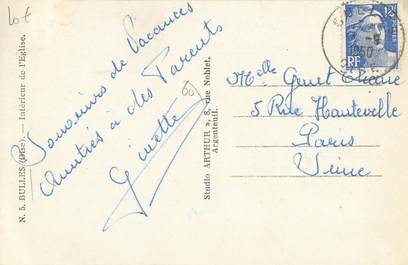 10€
N. 5. BULLES (Oise). — Intérieur de l'Eglise.
Souvenirs de Vacances
Amitiés à des Parents
Ginette
Studio ARTHUR », 8, rue Noblet,
Argenteuil.
12F
RF
1950
Melle Genet
5 Rue Hauteville
Paris
Xeme